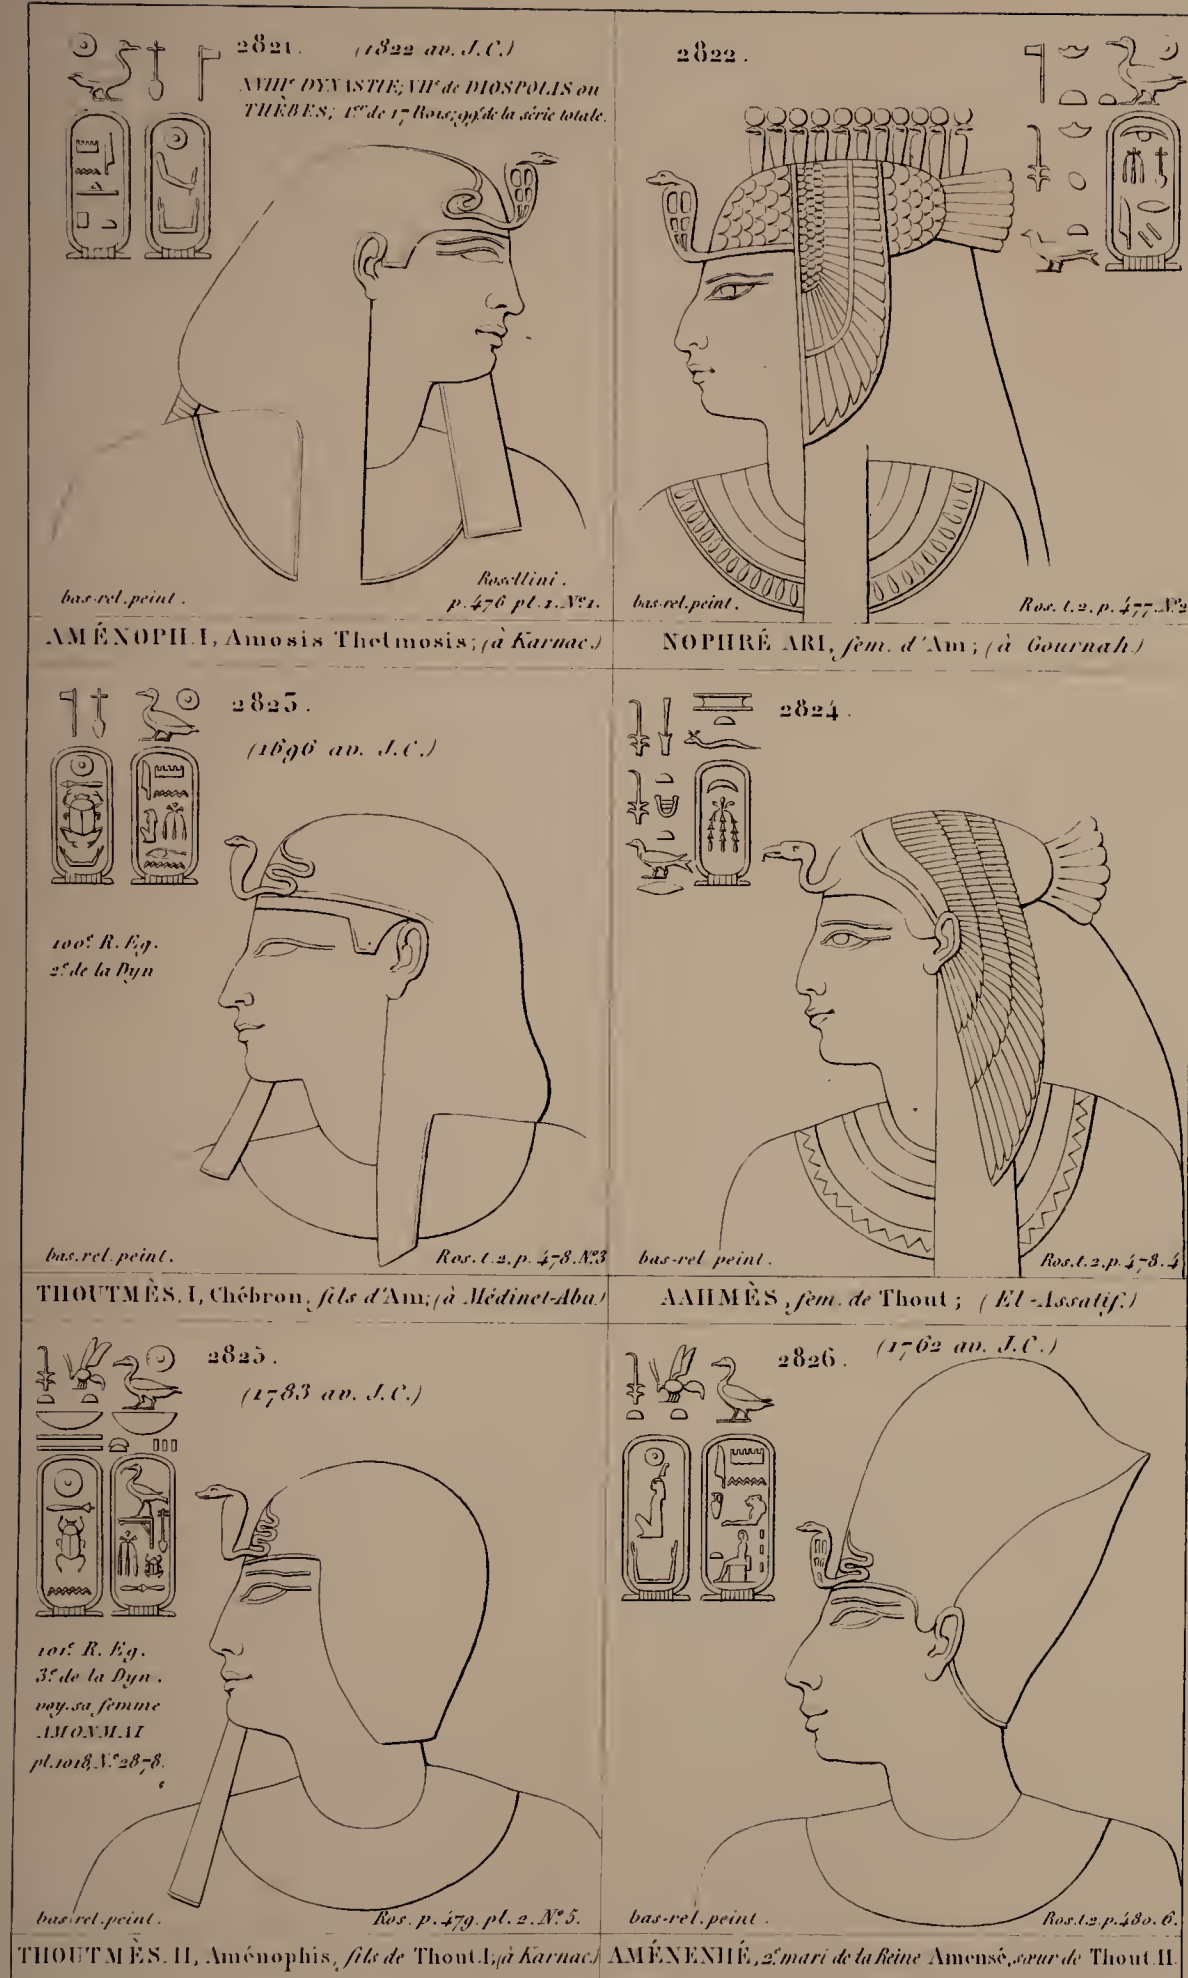 2821. (1822 av. J.C.)
XVIIIe DYNASTIE; VIIe de DIOSPOLIS ou
THÈBES; 1er de 17 Rois; 99e de la série totale.
bas-rel. peint.
Rosellini.
p. 476 pl. 1. No 1.
AMÉNOPH. I, Amosis Thetmosis; (à Karnac.)
2822.
bas-rel. peint.
Ros. t. 2. p. 477. No 2
NOPHRÉ ARI, fem. d'Am; (à Gournah.)
2823.
(1696 av. J.C.)
100e R. Eg.
2e de la Dyn
bas. rel. peint.
Ros. t. 2. p. 478. No 3
THOUTMÈS. I, Chébron, fils d'Am; (à Médinet-Abu)
2824.
bas-rel peint.
Ros. t. 2. p. 478. 4
AAHMÈS, fem. de Thout; (El-Assatif.)
2825.
(1783 av. J.C.)
101e R. Eg.
3e de la Dyn.
voy. sa femme
AMONMAI
pl. 1018, No 2878.
bas rel. peint.
Ros. p. 479. pl. 2. No 5.
THOUTMÈS. II, Aménophis, fils de Thout. I; (à Karnac.)
2826. (1762 av. J.C.)
bas-rel. peint.
Ros. t. 2. p. 480. 6.
AMÉNENHÉ, 2e mari de la Reine Amensé, sœur de Thout. II.